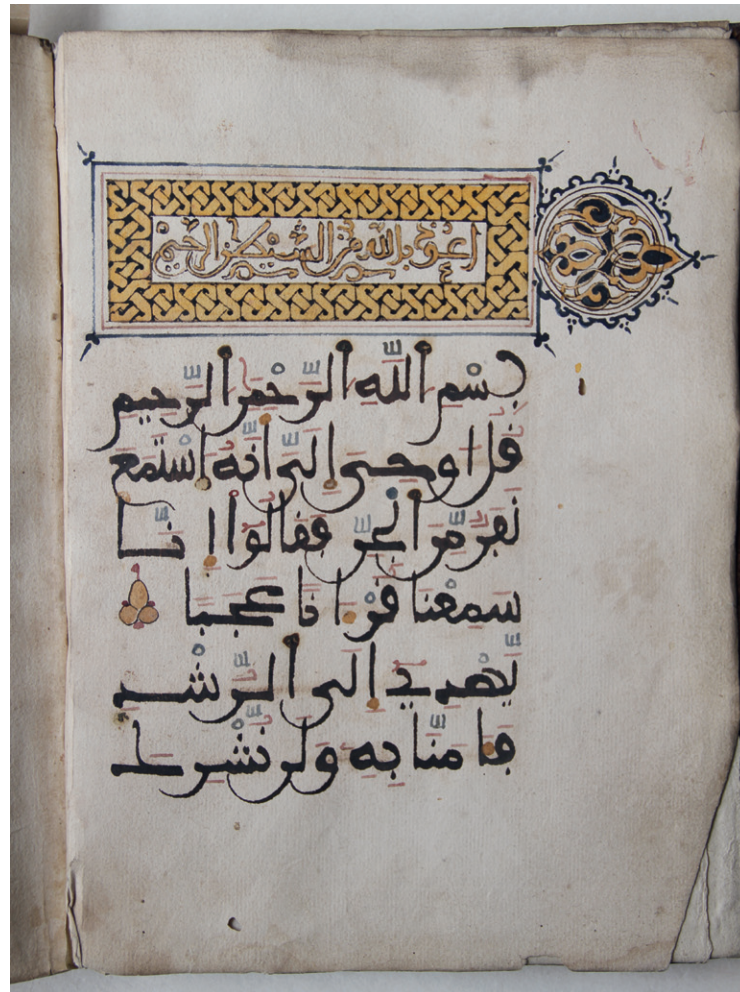 اعوذ بالله من الشيطان الرجيم
بِسْمِ اللَّهِ الرَّحْمَٰنِ الرَّحِيمِ
قُلْ أُوحِيَ إِلَيَّ أَنَّهُ اسْتَمَعَ
نَفَرٌ مِّنَ الْجِنِّ فَقَالُوا إِنَّا
سَمِعْنَا قُرْآنًا عَجَبًا
يَهْدِي إِلَى الرُّشْدِ
فَآمَنَّا بِهِ وَلَن نُّشْرِكَ